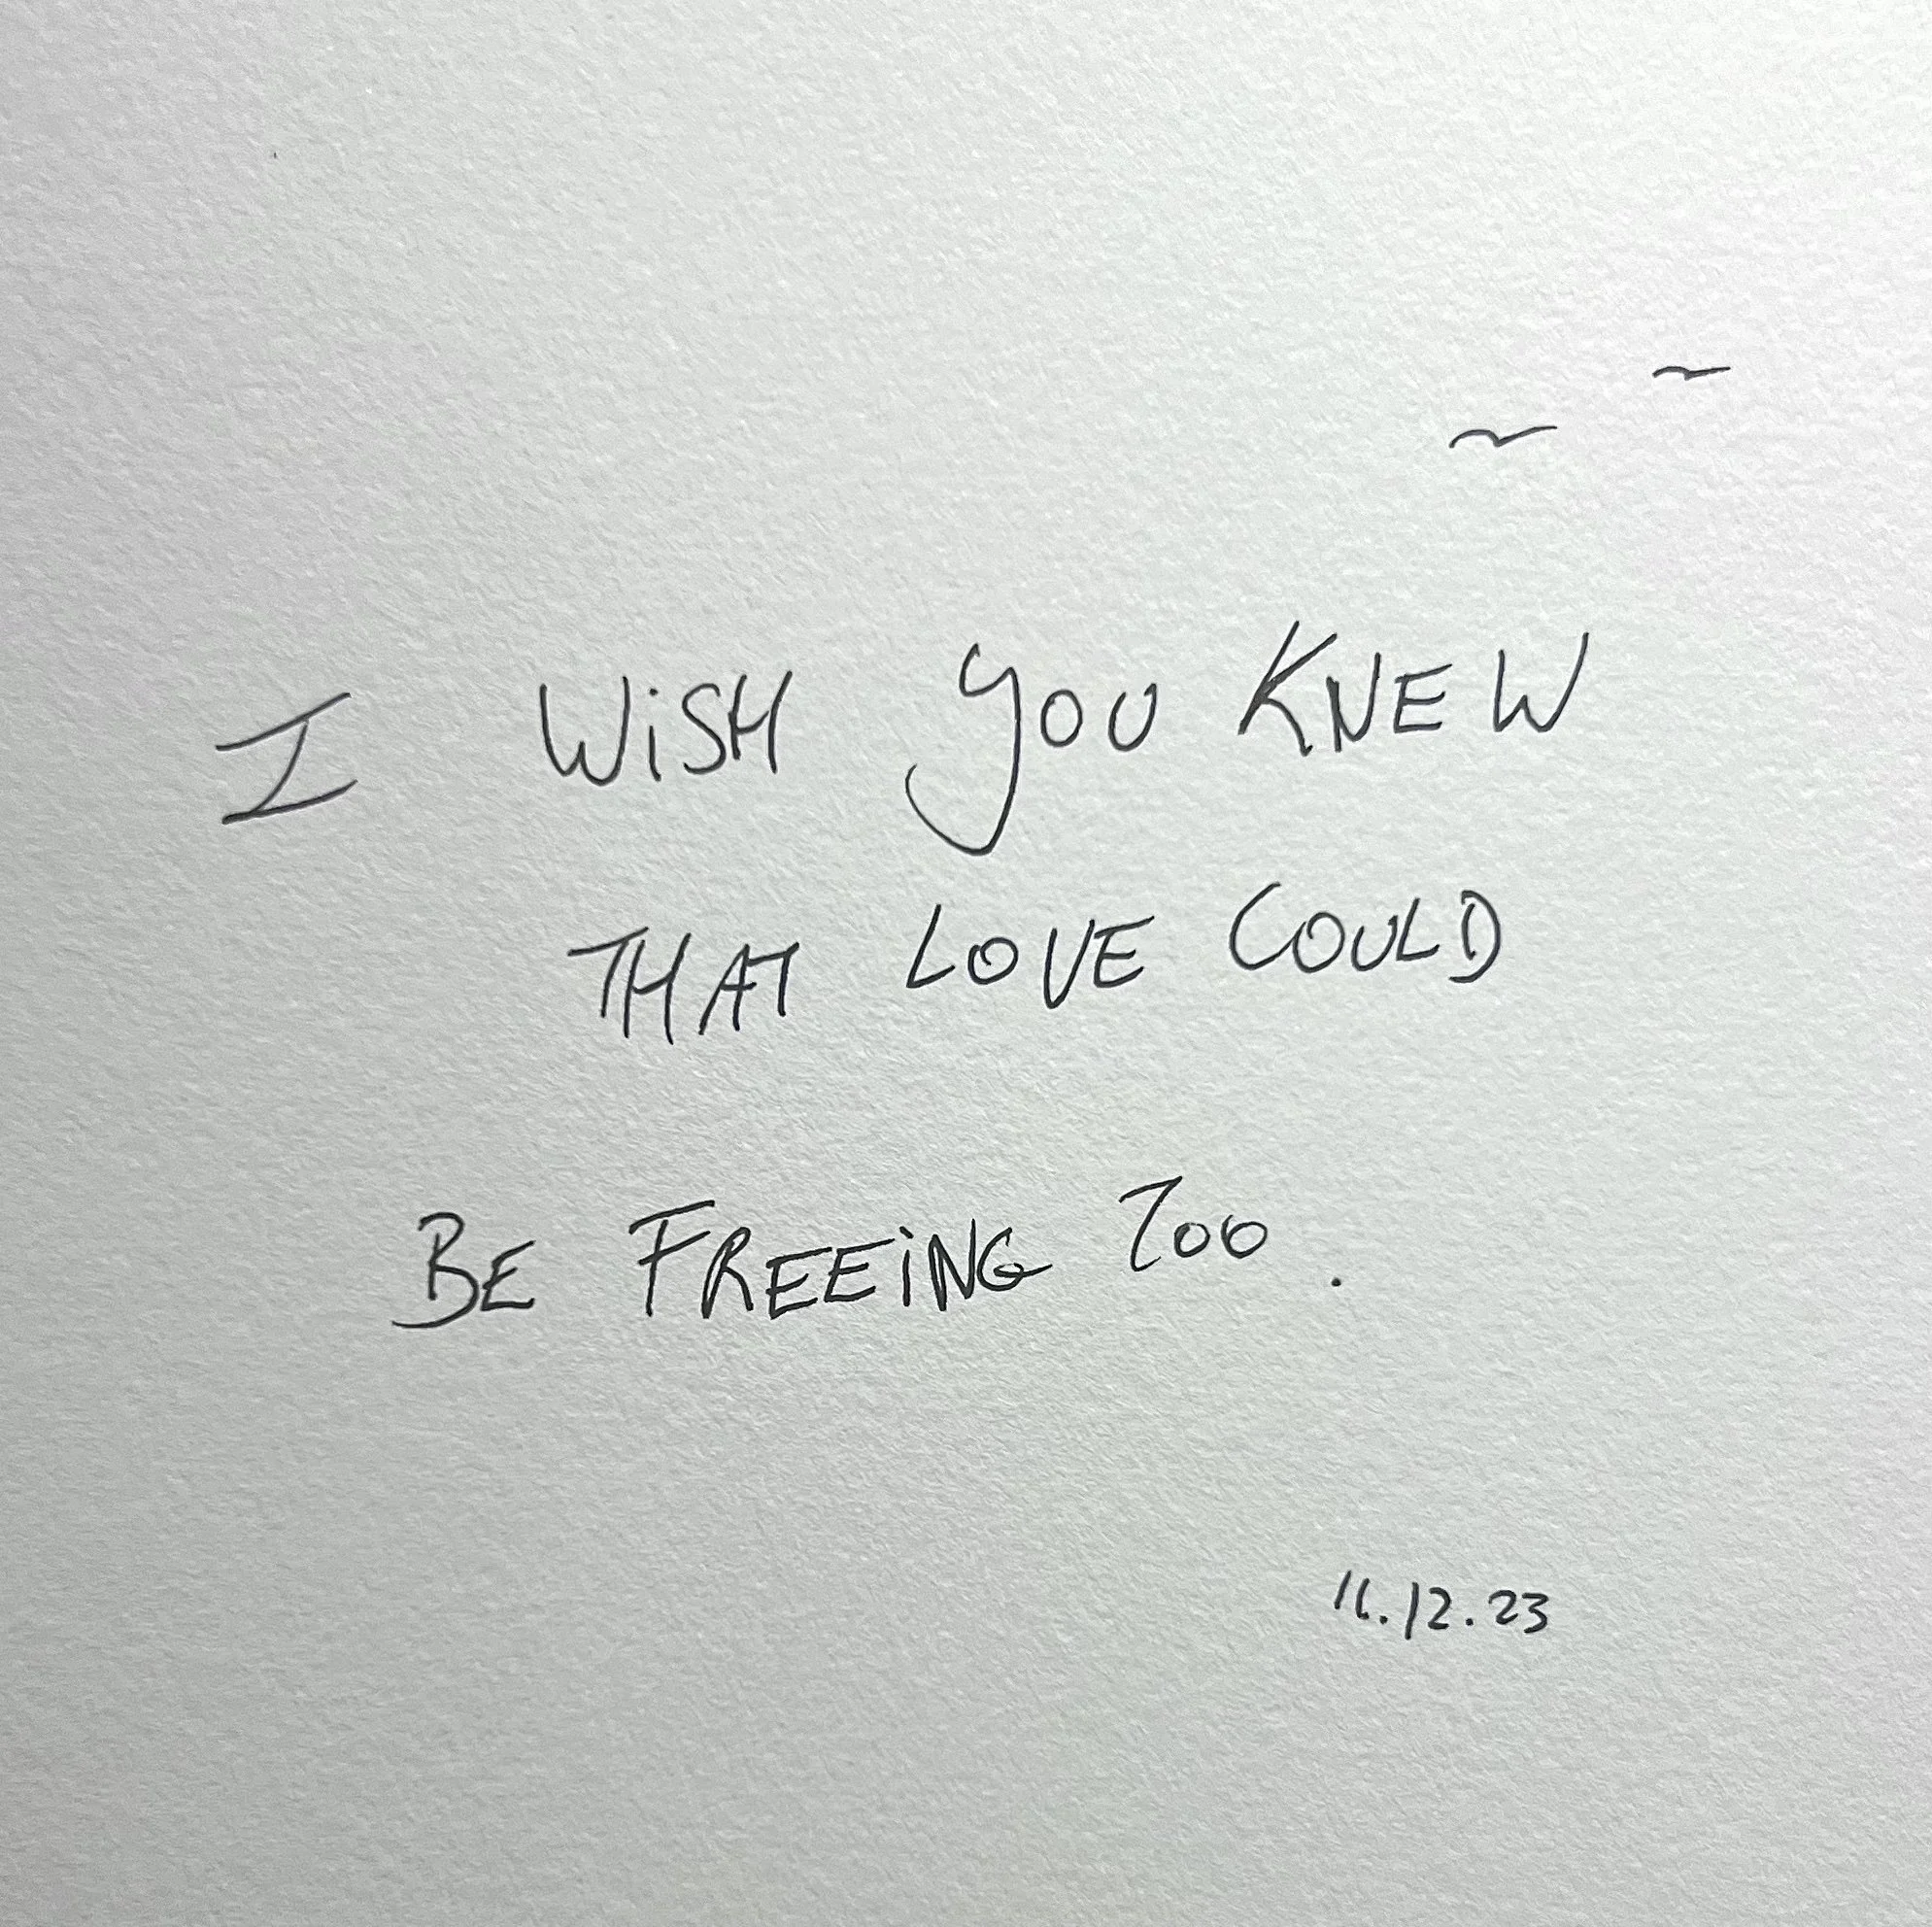 I WiSH YOU KNEW
THAT LOVE COULD
BE FREEiNG TOO.
11.12.23